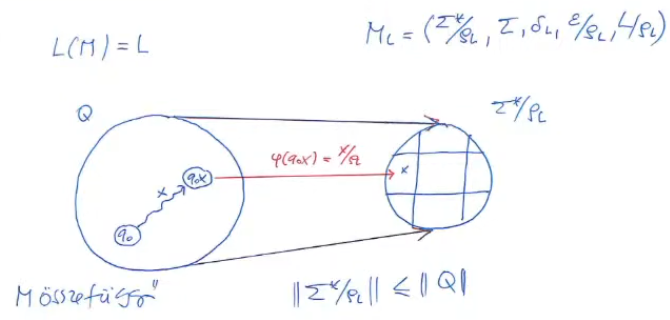 L(M) = L
M_L = (Σ*/ρ_L, Σ, δ_L, ε/ρ_L, L/ρ_L)
Q
Σ*/ρ_L
φ(q₀x) = x/ρ_L
x
q₀x
x
q₀
M összefüggő
||Σ*/ρ_L|| ≤ ||Q||